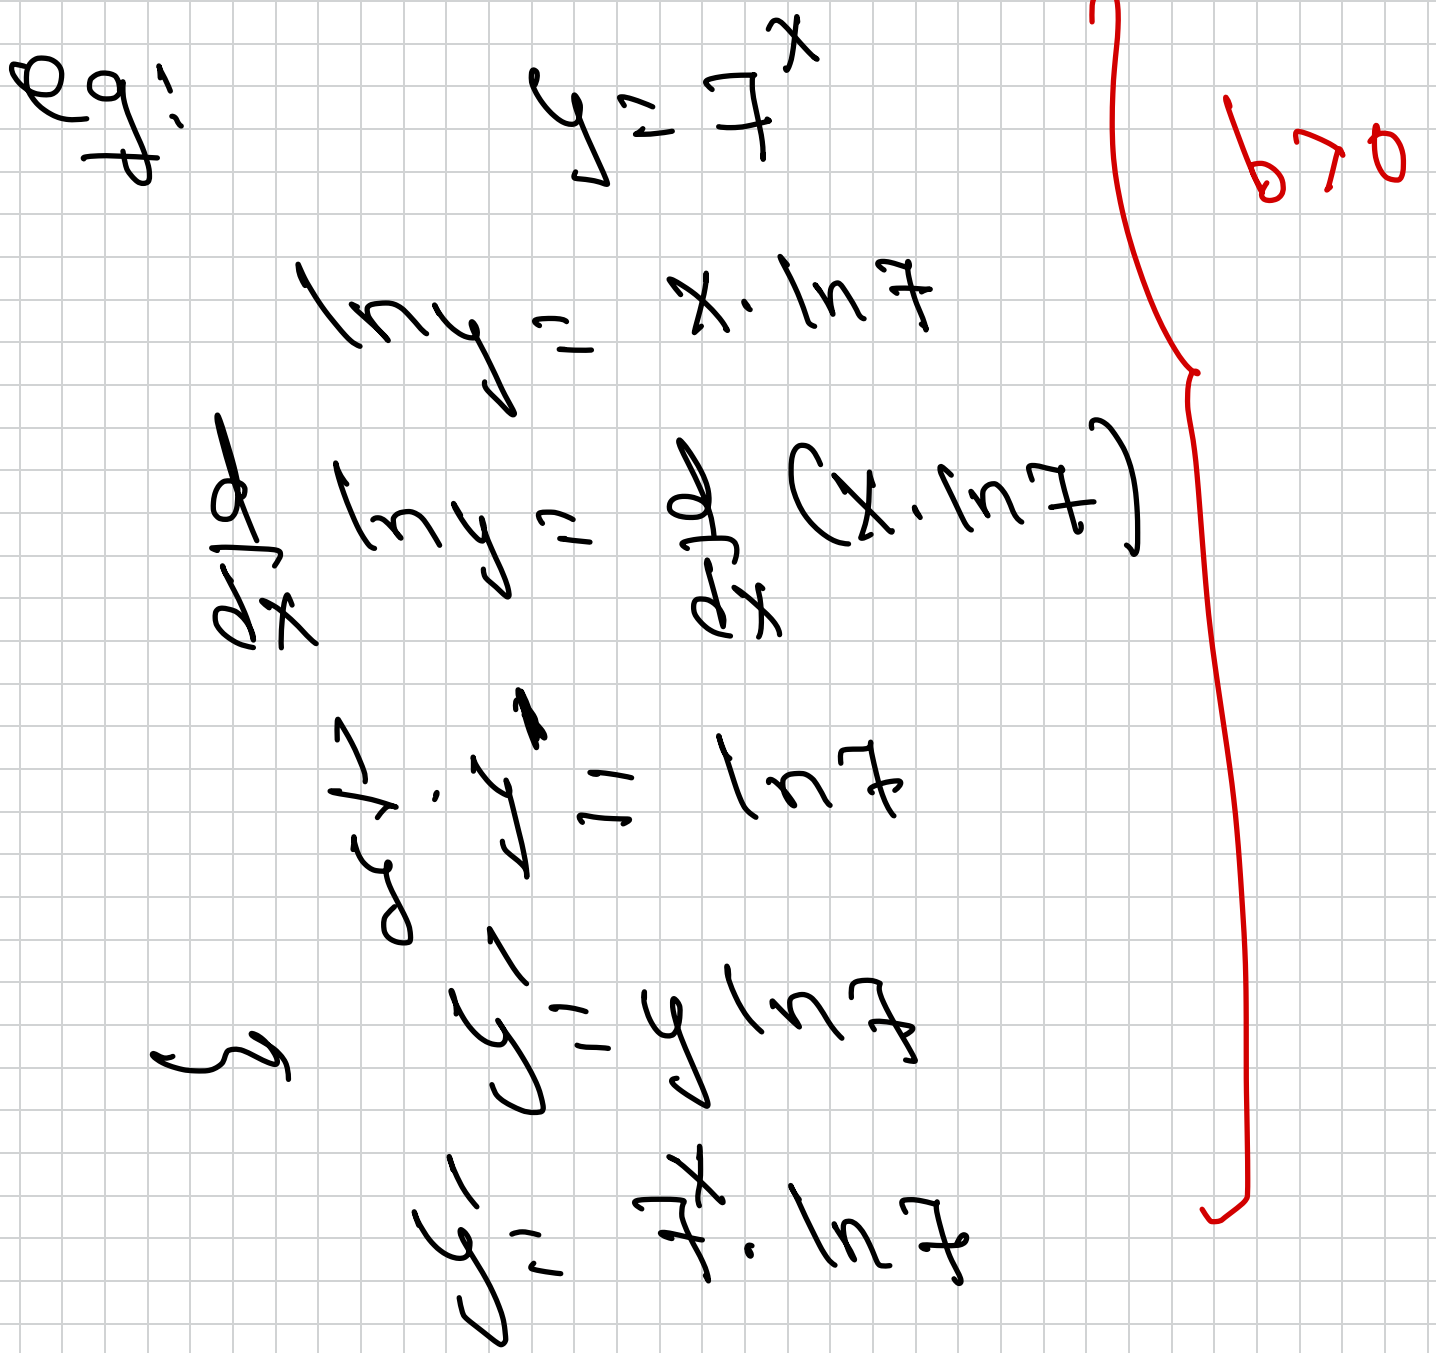 eg: y = 7^x
b > 0
ln y = x · ln 7
d/dx ln y = d/dx (x · ln 7)
1/y · y' = ln 7
y' = y ln 7
y' = 7^x · ln 7